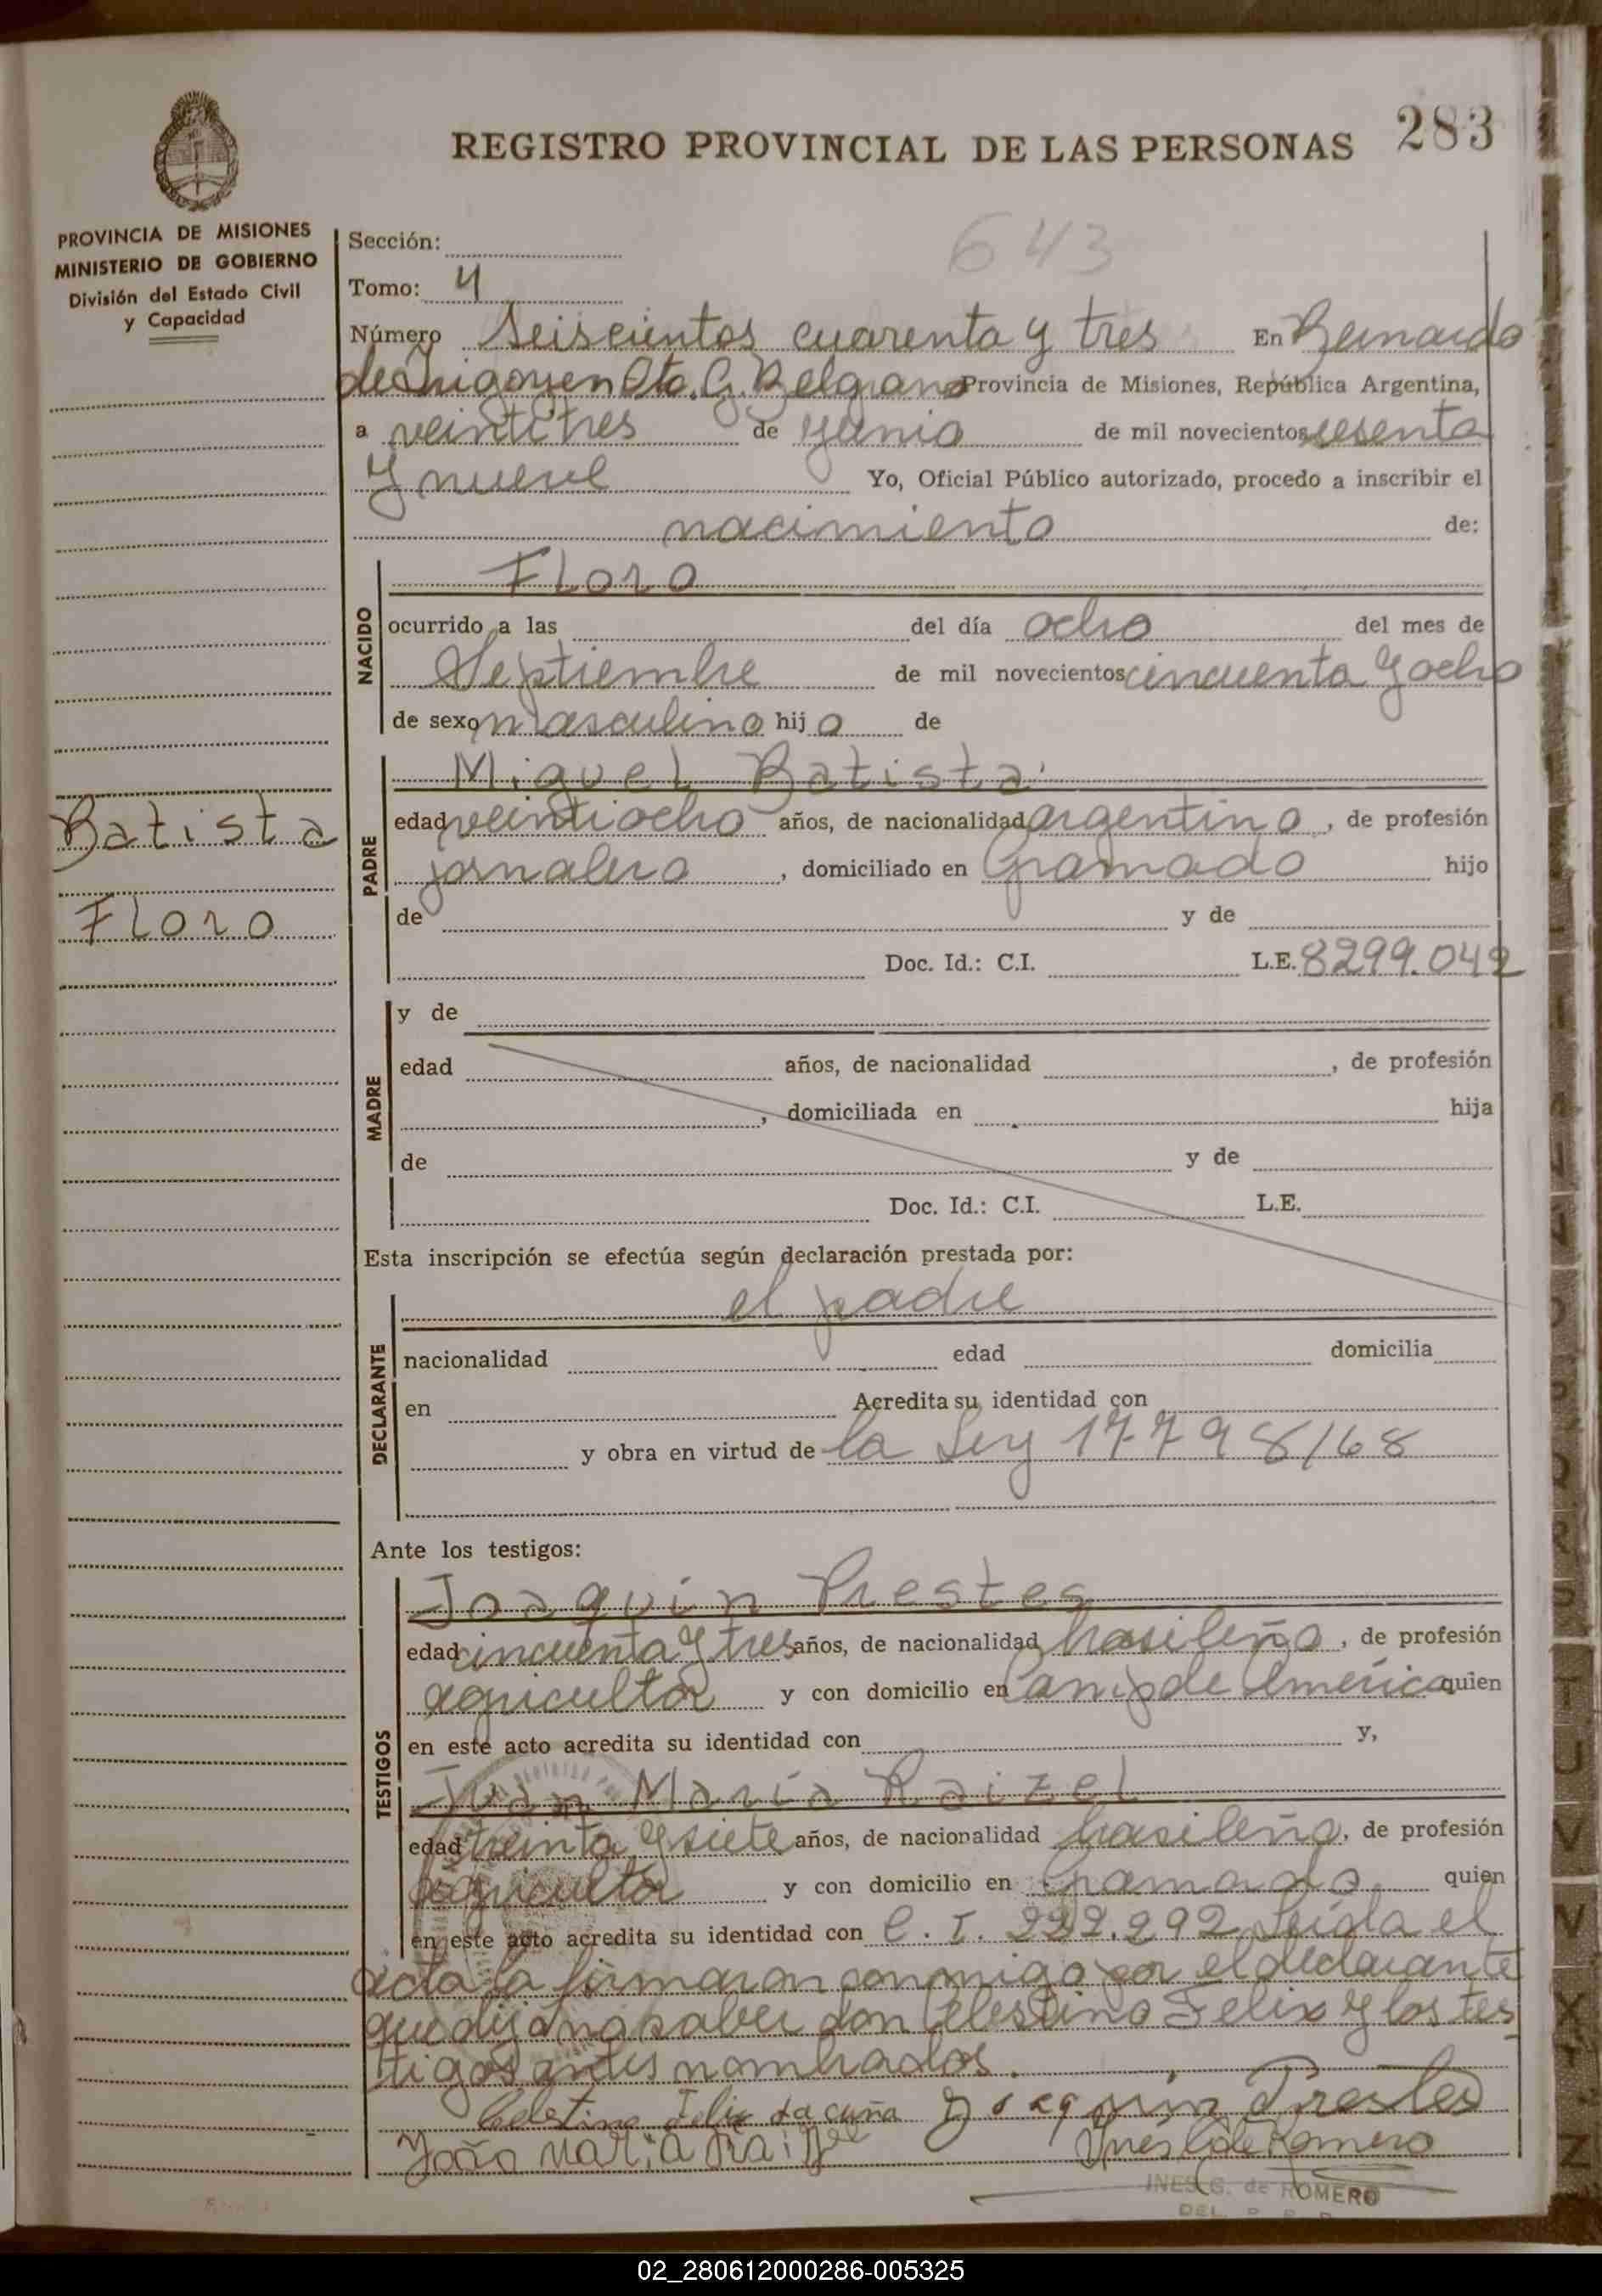 283
REGISTRO PROVINCIAL DE LAS PERSONAS
PROVINCIA DE MISIONES
MINISTERIO DE GOBIERNO
División del Estado Civil
y Capacidad
643
Sección:
Tomo: 4
Número Seiscientos cuarenta y tres En Bernardo
de Irigoyen Dto. G. Belgrano Provincia de Misiones, República Argentina,
a veintitres de junio de mil novecientos sesenta
y nueve Yo, Oficial Público autorizado, procedo a inscribir el
nacimiento de:
NACIDO
Floro
ocurrido a las del día ocho del mes de
Septiembre de mil novecientos cincuenta y ocho
de sexo masculino hijo de
PADRE
Miguel Batista
edad veintiocho años, de nacionalidad argentino, de profesión
jornalero, domiciliado en Gramado hijo
de y de
Doc. Id.: C.I. L.E. 8299.042
Batista
Floro
MADRE
y de
edad años, de nacionalidad , de profesión
, domiciliada en hija
de y de
Doc. Id.: C.I. L.E.
Esta inscripción se efectúa según declaración prestada por:
DECLARANTE
el padre
nacionalidad edad domicilia
en Acredita su identidad con
y obra en virtud de la Ley 17798/68
Ante los testigos:
TESTIGOS
Joaquin Prestes
edad cincuenta y tres años, de nacionalidad brasileño, de profesión
agricultor y con domicilio en Camp de America quien
en este acto acredita su identidad con y,
Juan María Raizel
edad treinta y siete años, de nacionalidad brasileño, de profesión
agricultor y con domicilio en Gramado quien
en este acto acredita su identidad con C. I. 222.292 Leida el
acta la firmaron conmigo por el declarante
que dijo no saber don Celestino Felix y los tes
tigos antes nombrados.
Celestino Felix da cuña Joaquin Prestes
João Maria Ines G de Romero
INES G. de ROMERO
02_280612000286-005325